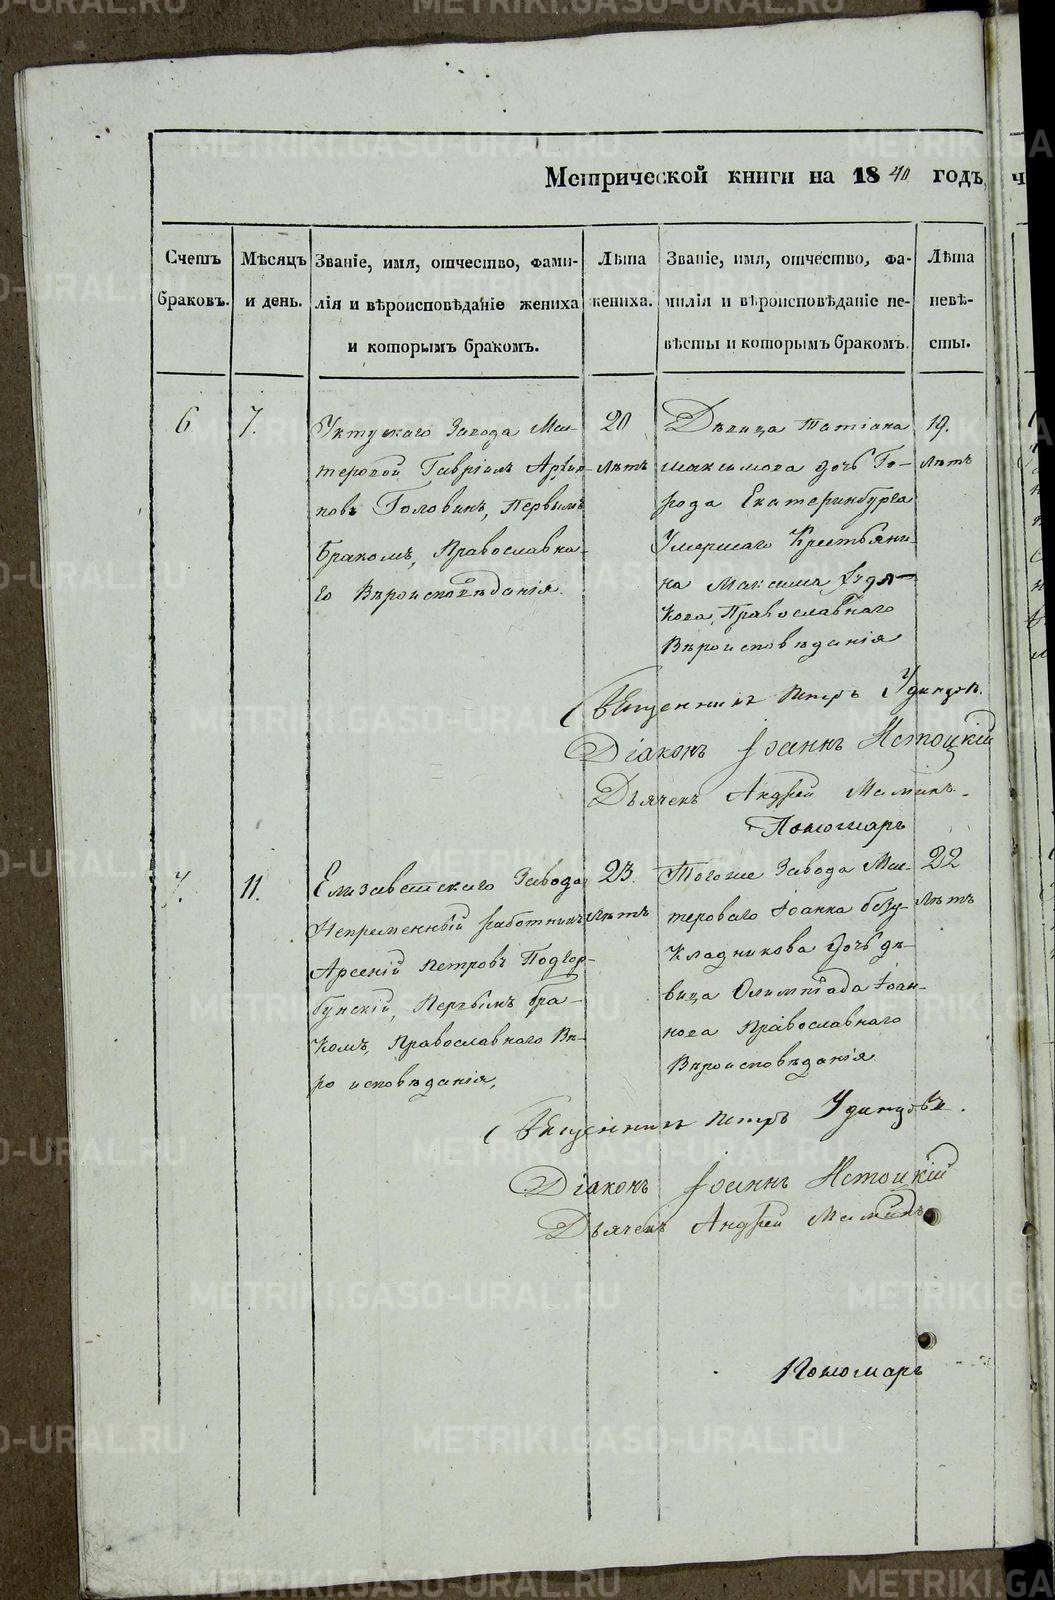 Метрической книги на 1840 годъ, ч
Счетъ браковъ.
Мѣсяцъ и день.
Званіе, имя, отчество, фами-
лія и вѣроисповѣданіе жениха
и которымъ бракомъ.
Лѣта
жениха.
Званіе, имя, отчество, фа-
милія и вѣроисповѣданіе не-
вѣсты и которымъ бракомъ.
Лѣта
невѣ-
сты.
6
7.
Уктускаго Завода Мас-
теровой Гавріилъ Архип-
повъ Головинъ, Первымъ
бракомъ, Православна-
го Вѣроисповѣданія.
20
лѣтъ
Дѣвица Татіана
Максимова дочь Го-
рода Екатеринбурга
Умершаго Крестьяни-
на Максима Худя-
кова, Православнаго
Вѣроисповѣданія
19.
лѣтъ
Священникъ Петръ Удинцовъ.
Діаконъ Іоаннъ Истоцкій
Дьячекъ Андрей Маминъ.
Пономарь
7.
11.
Елизаветскаго Завода
Непременный работникъ
Арсений Петровъ Подгор-
бунскій, Первымъ бра-
комъ, Православнаго Вѣ-
роисповѣданія,
23.
лѣтъ
Тогоже Завода Мас-
тероваго Іоанна безу-
кладникова дочь дѣ-
вица Олимпіада Іоан-
нова Православнаго
Вѣроисповѣданія
22
лѣтъ
Священникъ Петръ Удинцовъ.
Діаконъ Іоаннъ Истоцкій
Дьячекъ Андрей Маминъ
Пономарь
METRIKI.GASO-URAL.RU